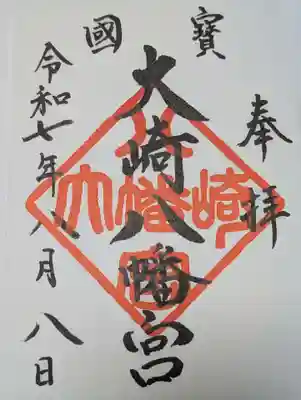 奉拝
國寶
大崎八幡宮
令和七年八月八日
大崎八幡宮